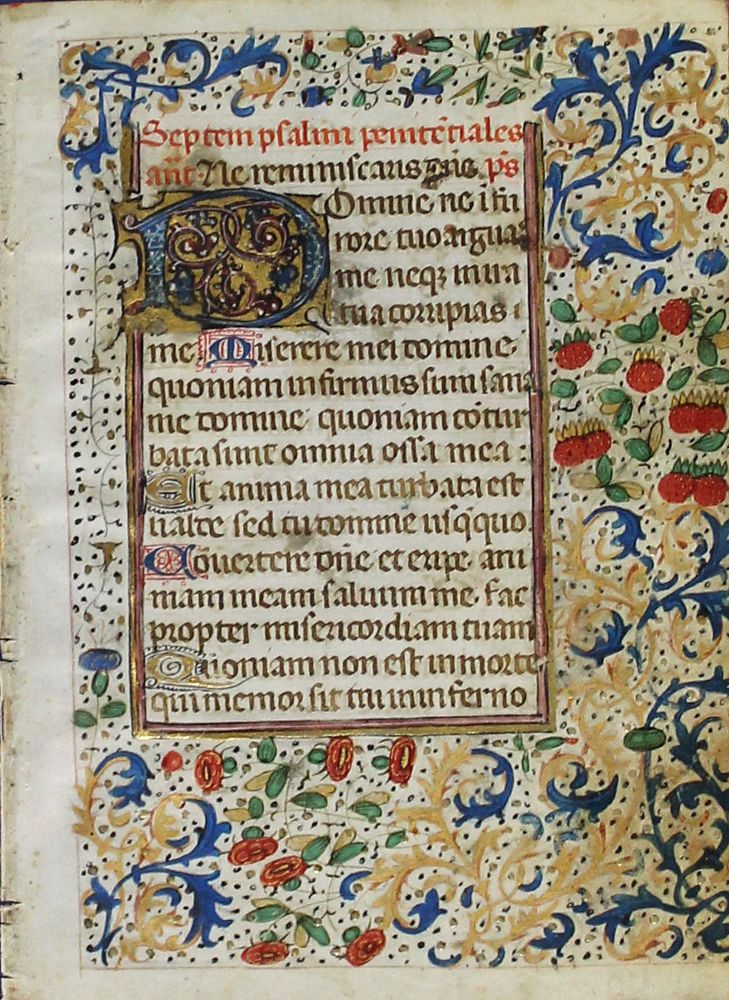 Septem psalmi penitēciales
añt Ne reminiscaris dñe p̄s
Domine ne ī fu
rore tuo arguas
me neqz in ira
tua corripias
me Miserere mei domine
quoniam infirmus sum sana
me domine quoniam cōtur
bata sunt omnia ossa mea :
Et anima mea turbata est
ualde sed tu domine usq̄quo
Cōuertere dñe et eripe ani
mam meam saluum me fac
propter misericordiam tuam
Quoniam non est in morte
qui memor sit tui in inferno